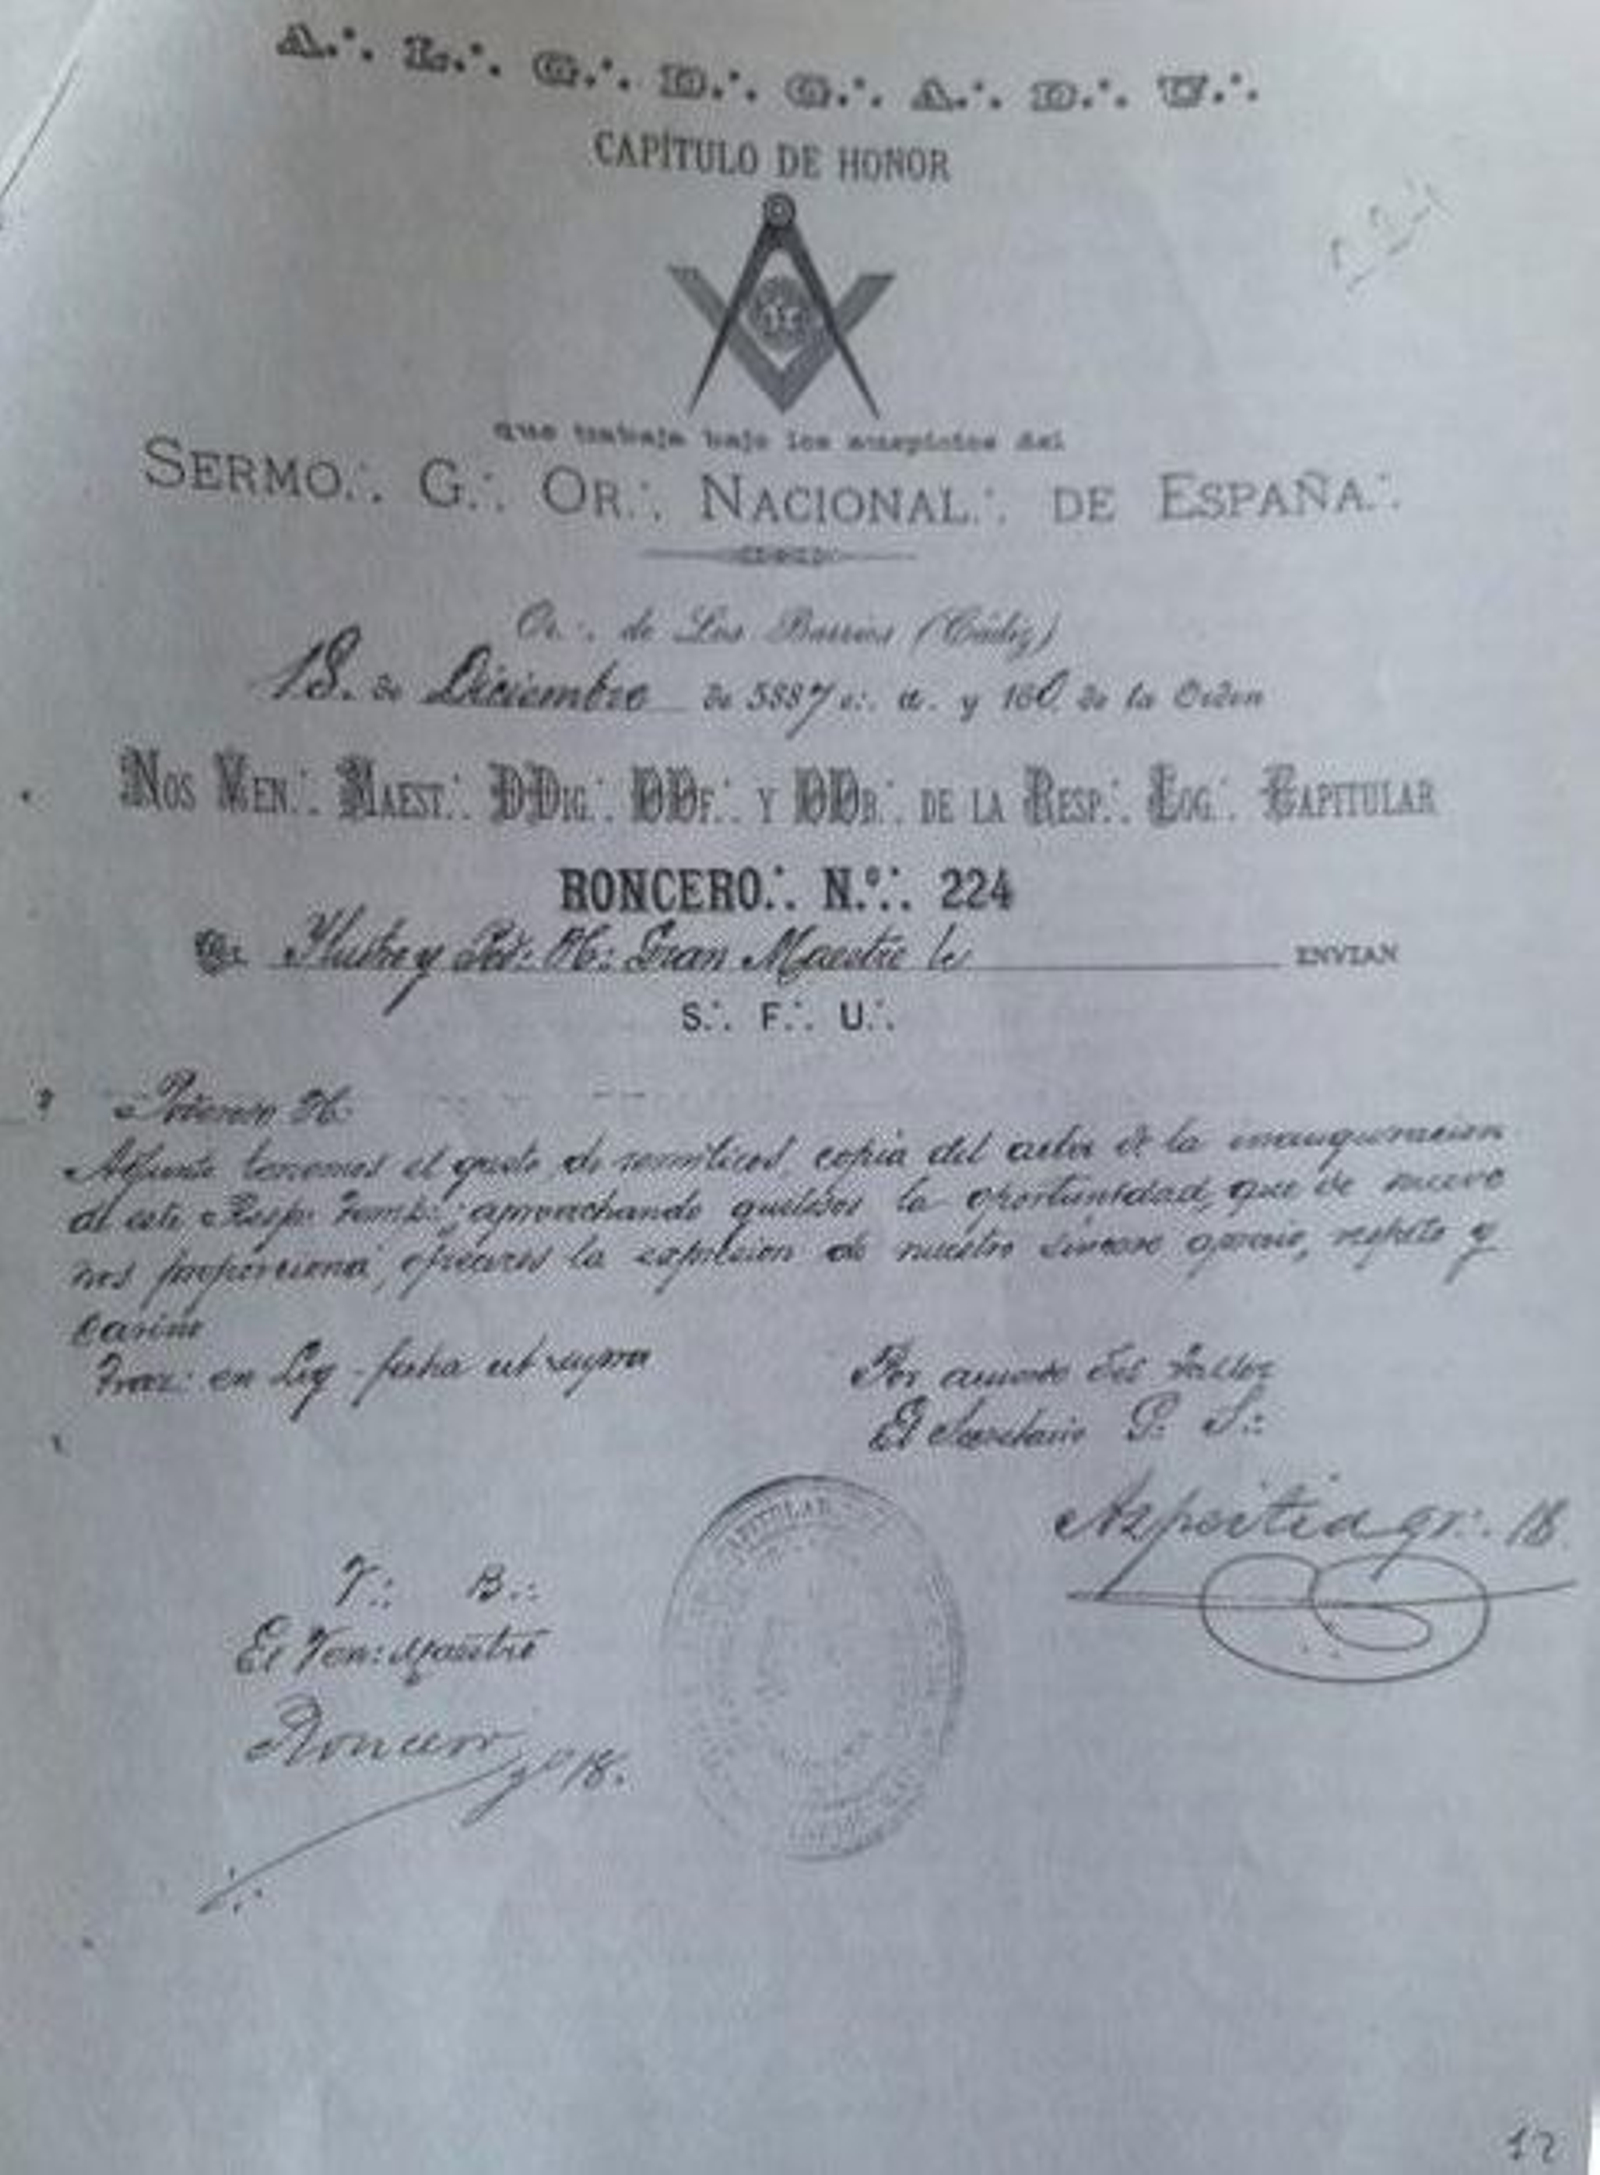 A∴ L∴ G∴ D∴ G∴ A∴ D∴ U∴
CAPÍTULO DE HONOR
que trabaja bajo los auspicios del
SERMO∴ G∴ OR∴ NACIONAL∴ DE ESPAÑA∴
Or∴ de Los Barrios (Cádiz)
18. de Diciembre de 5887 e∴ a. y 160 de la Orden
NOS VEN∴ MAEST∴ DDIG∴ DDF∴ Y DDB∴ DE LA RESP∴ LOG∴ CAPITULAR
RONCERO∴ N.º∴ 224
Ilustre y Pod∴ H∴ Gran Maestre ENVIAN
S∴ F∴ U∴
Poderoso H∴
Adjunto tenemos el gusto de remitiros, copia del acta de la inauguracion
de este Resp∴ Temp∴, aprovechando gustosos la oportunidad, que de nuevo
nos proporciona, ofreceros la expresion de nuestro sincero aprecio, respeto y
cariño
Traz∴ en Log - fecha ut supra
Por acuerdo del Taller
El Secretario G∴ S∴
Azpeitia gr∴ 18
V∴ B∴
El Ven∴ Maestre
Roncero gº 18.
CAPITULAR
12